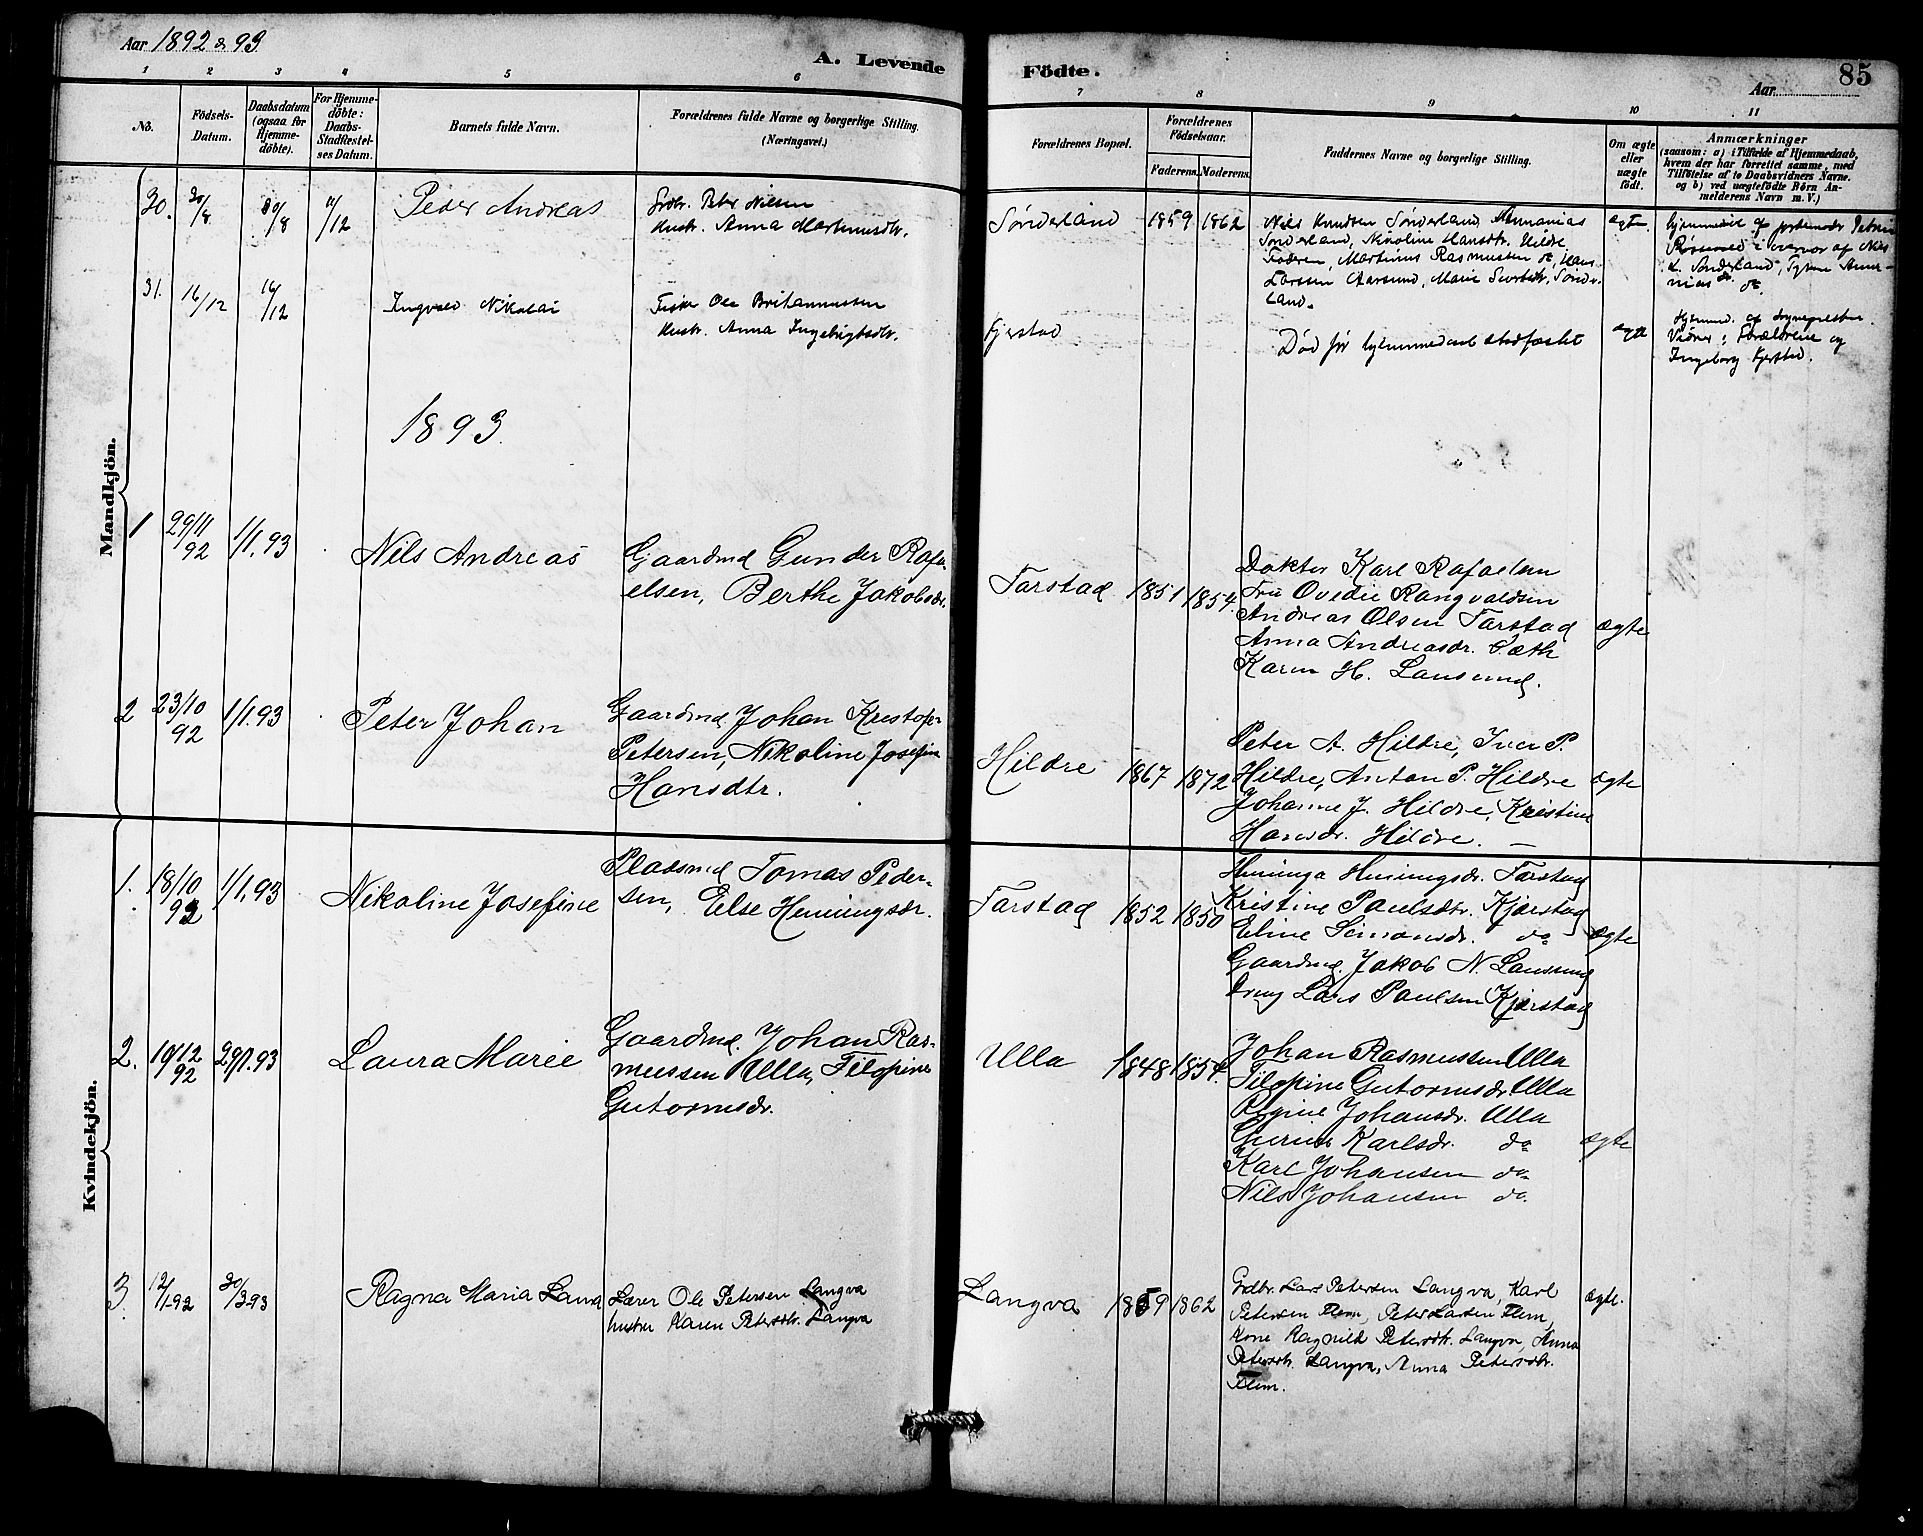 Aar 1892 & 93
A. Levende Födte.
85
Aar
1 2 3 4 5 6 7 8 9 10 11
No.
Födsels-
Datum.
Daabsdatum
(ogsaa for
Hjemme-
döbte).
For Hjemme-
döbte:
Daabs-
Stadfæstel-
ses Datum.
Barnets fulde Navn.
Forældrenes fulde Navne og borgerlige Stilling.
(Næringsvei.)
Forældrenes Bopæl.
Forældrenes
Födselsaar.
Faderens. Moderens.
Faddernes Navne og borgerlige Stilling.
Om ægte
eller
uægte
födt.
Anmærkninger
(saasom: a) i Tilfælde af Hjemmedaab,
hvem der har forrettet samme, med
Tilföielse af to Daabsvidners Navne.
og b) ved uægtefödte Börn An-
melderens Navn m. V.)
Mandkjön.
30. 30/8 30/8 11/12 Peder Andreas
Grdbr. Peter Nilsen
Hustr. Anna Martinusdtr.
Sönderland 1859 1862
Nils Knudsen Sönderland, Annanias
Sönderland, Nikoline Hansdtr. Hildre
Fadren, Martinus Rasmussen do, Hans
Larssen Aarsund, Marie Sivertsdtr. Sönder-
land.
ægte.
hjemmedöbt af jordemoder Petrine
i nærvær af Nils
K. Sönderland, Annan-
nias do.
31. 16/12 16/12 Ingvald Nikolai
Fisker Ole Britannussen
Hustr. Anna Ingebrigtsdtr.
Fjerstad
Död för hjemmedaab stadfæstet
ægte
Hjemmed. af sognepresten.
Vidner: Forældrene og
Ingeborg Fjerstad.
1893.
1 29/11 92 1/1.93 Nils Andreas
Gjaardmd Gunder Rafa-
elsen, Berthe Jakobsdr.
Farstad 1851 1854.
Doktor Karl Rafaelsen
Fru Ovedie Rangvaldsen
Andreas Olsen Farstad
Anna Andreasdr. Sæth
Karen H. Lausund.
ægte
2 23/10 92 1/1.93 Peter Johan
Gaardmd Johan Kristofer
Petersen, Nikoline Josefine
Hansdtr.
Hildre 1867 1872
Peter A. Hildre, Iver P.
Hildre, Anton P. Hildre
Johanne J. Hildre, Kristine
Hansdr. Hildre. —
ægte
Kvindekjön.
1. 18/10 92 1/1.93 Nikoline Josefine
Pladsmd Tomas Peder-
sen, Else Henningsdr.
Farstad 1852 1850
Heninga Henningsdr. Farstad
Kristine Paulsdtr. Kjærstad
Eline Simonsdr. do
Gaardmd. Jakob N. Lausund
Dreng Lars Paulsen Kjærstad
ægte
2. 19/12 92 29/1.93 Laura Marie
Gaardmd. Johan Ras-
mussen Ulla, Filopine
Gutormsdr.
Ulla 1848 1854.
Johan Rasmussen Ulla
Filopine Gutormsdr. Ulla
Regine Johansdr. Ulla
Gurine Karlsdr. do
Karl Johansen do
Nils Johansen do.
ægte
3. 12/1.92 30/3.93 Ragna Maria Laura
Lærer Ole Petersen Langva
hustru Karen Petersdtr. Langva
Langva 1859 1862
Grdbr. Lars Petersen Langva, Karl
Petersen Flem, Peter Larsen Flem,
Kone Ragnild Petersdtr. Langva, Anna
Petersdtr. Langva, Anna Petersdtr.
Flem.
ægte.